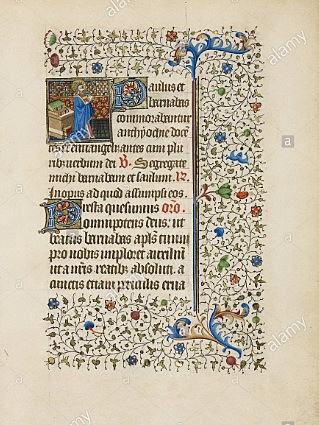 Paulus et
barnabas
commorabantur
anthyochie doce
tes et euangelizantes cum plu
ribz uerbum dei V. Segregate
michi barnabam et saulum. R.
In opus ad quod assumpsi eos.
Presta quesumus oro.
omnipotens deus: ut
beatus barnabas apls tuum
pro nobis imploret auxiliu
ut a nris reatibz absoluti, a
cunctis etiam periculis erua
alamy
alamy
alamy
a
a